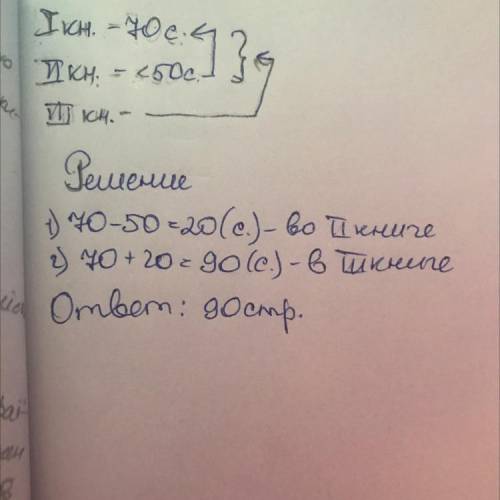 I кн. - 70 с.
II кн. = < 50 с.
III кн. -
Решение
1) 70 - 50 = 20 (с.) - во II книге
2) 70 + 20 = 90 (с.) - в III книге
Ответ: 90 стр.